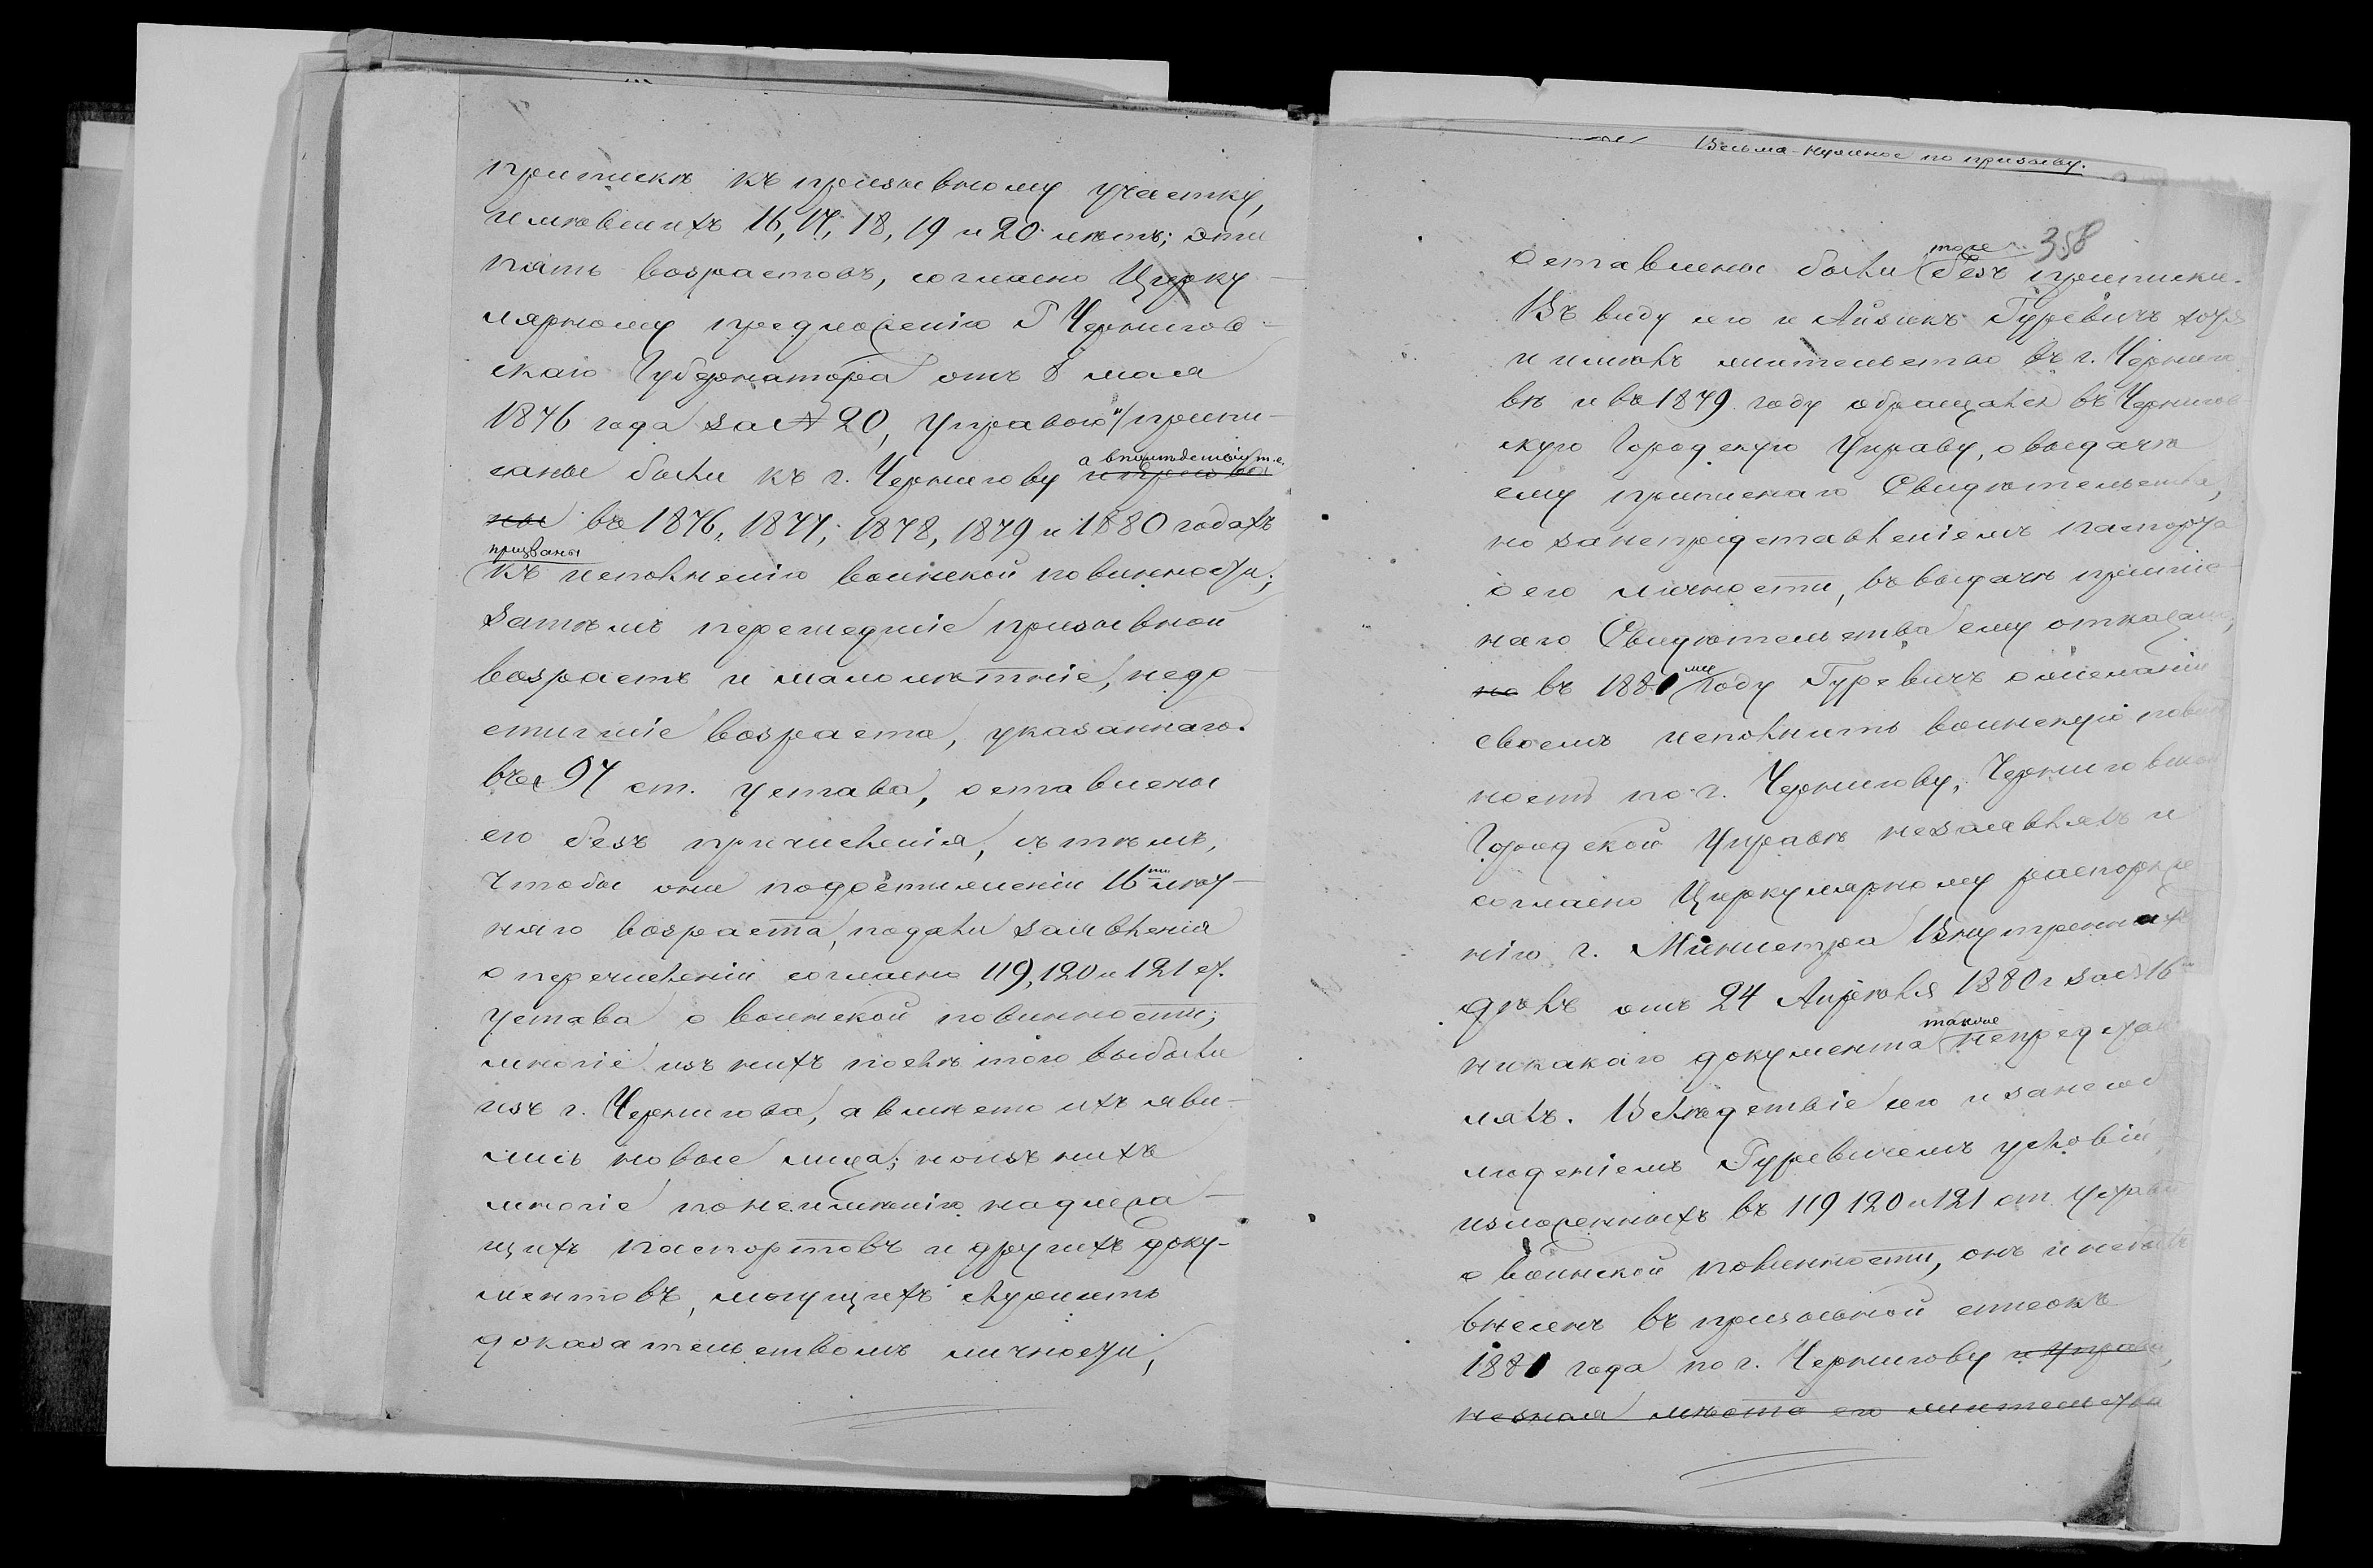 приписке къ призывному участку,
имѣвшихъ 16, 17, 18, 19 и 20 лѣтъ; эти
пять возрастовъ, согласно Цирку-
лярному предложенію Г Чернигов-
скаго Губернатора отъ 8 мая
1876 года за № 20, Управою припи-
саны были къ г. Чернигову а впослѣдствіи т. е.
ны въ 1876, 1877, 1878, 1879 и 1880 годахъ
призваны
къ исполненію воинской повинности;
затѣмъ перешедшіе призывной
возрастъ и малолѣтніе, недо-
стигшіе возраста, указаннаго
въ 97 ст. устава, оставлены
ею безъ причисленія, съ тѣмъ,
чтобы они по достиженіи 16ти лѣт-
няго возраста, подали заявленія
о перечисленіи согласно 119, 120 и 121 ст.
Устава о воинской повинности;
многіе изъ нихъ послѣ того выбыли
изъ г. Чернигова, а вмѣсто ихъ яви-
лись новые лица; но изъ нихъ
многіе по неимѣнію надлежа-
щихъ паспортовъ и другихъ доку-
ментовъ, могущихъ служить
доказательствомъ личности,
Весьма-нужное по призыву.
358
тоже
оставлены были безъ приписки.
Въ виду сего и Айзикъ Гуревичъ хотя
и имѣлъ жительство въ г. Черниго
вѣ и въ 1879 году обращался въ Чернигов-
скую Городскую Управу, о выдачѣ
ему приписнаго Свидѣтельства,
но за непредставленіемъ паспорта
о его личности, въ выдачѣ припис-
наго Свидѣтельства ему отказано,
но въ 1881му году Гуревичъ о желаніи
своемъ исполнить воинскую повин
ность по г. Чернигову, Черниговской
Городской Управѣ незаявлялъ и
согласно Циркулярному распоряже
нію г. Министра Внутреннихъ
дѣлъ отъ 24 Апрѣля 1880 г за № 16
никакого документа также непредстав
лялъ. Вслѣдствіе сего и за несоб
люденіемъ Гуревичемъ условій
изложенныхъ въ 119 120 и 121 ст Устава
о воинской повинности, онъ и небылъ
внесенъ въ призывной списокъ
1881 года по г. Чернигову и Управа,
незная мѣста его жительства